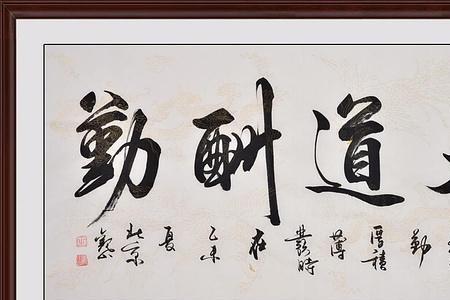 道酬勤
勤厚積薄發時在乙未夏北京